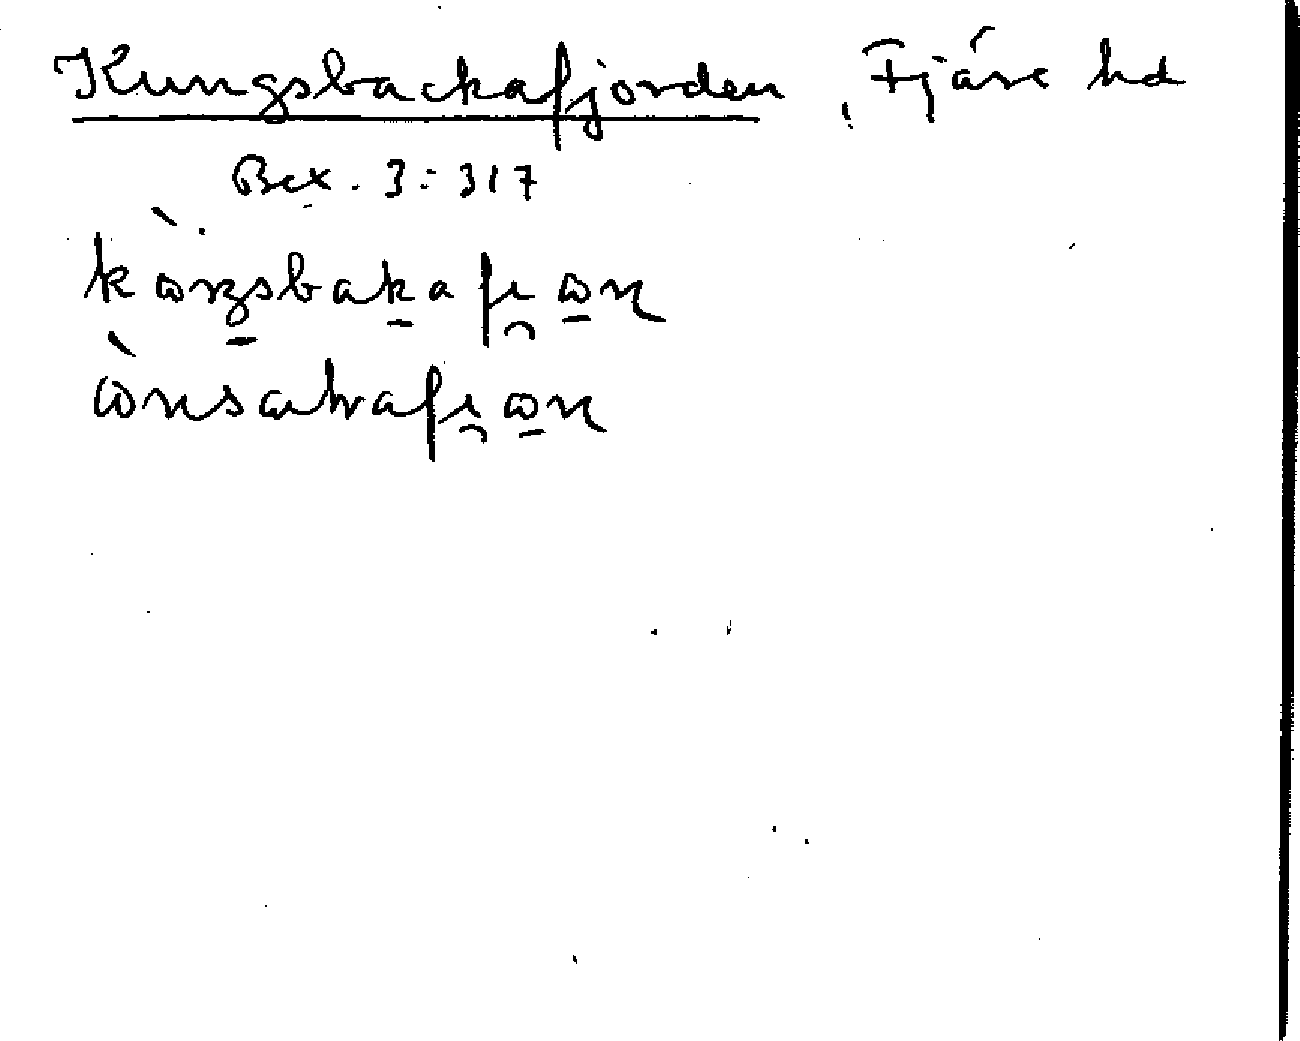 Kungsbackafjorden, Fjäre hd
Bex. 3:317
kòŋsbakafi̯ωn
ὼnsalafi̯ωn